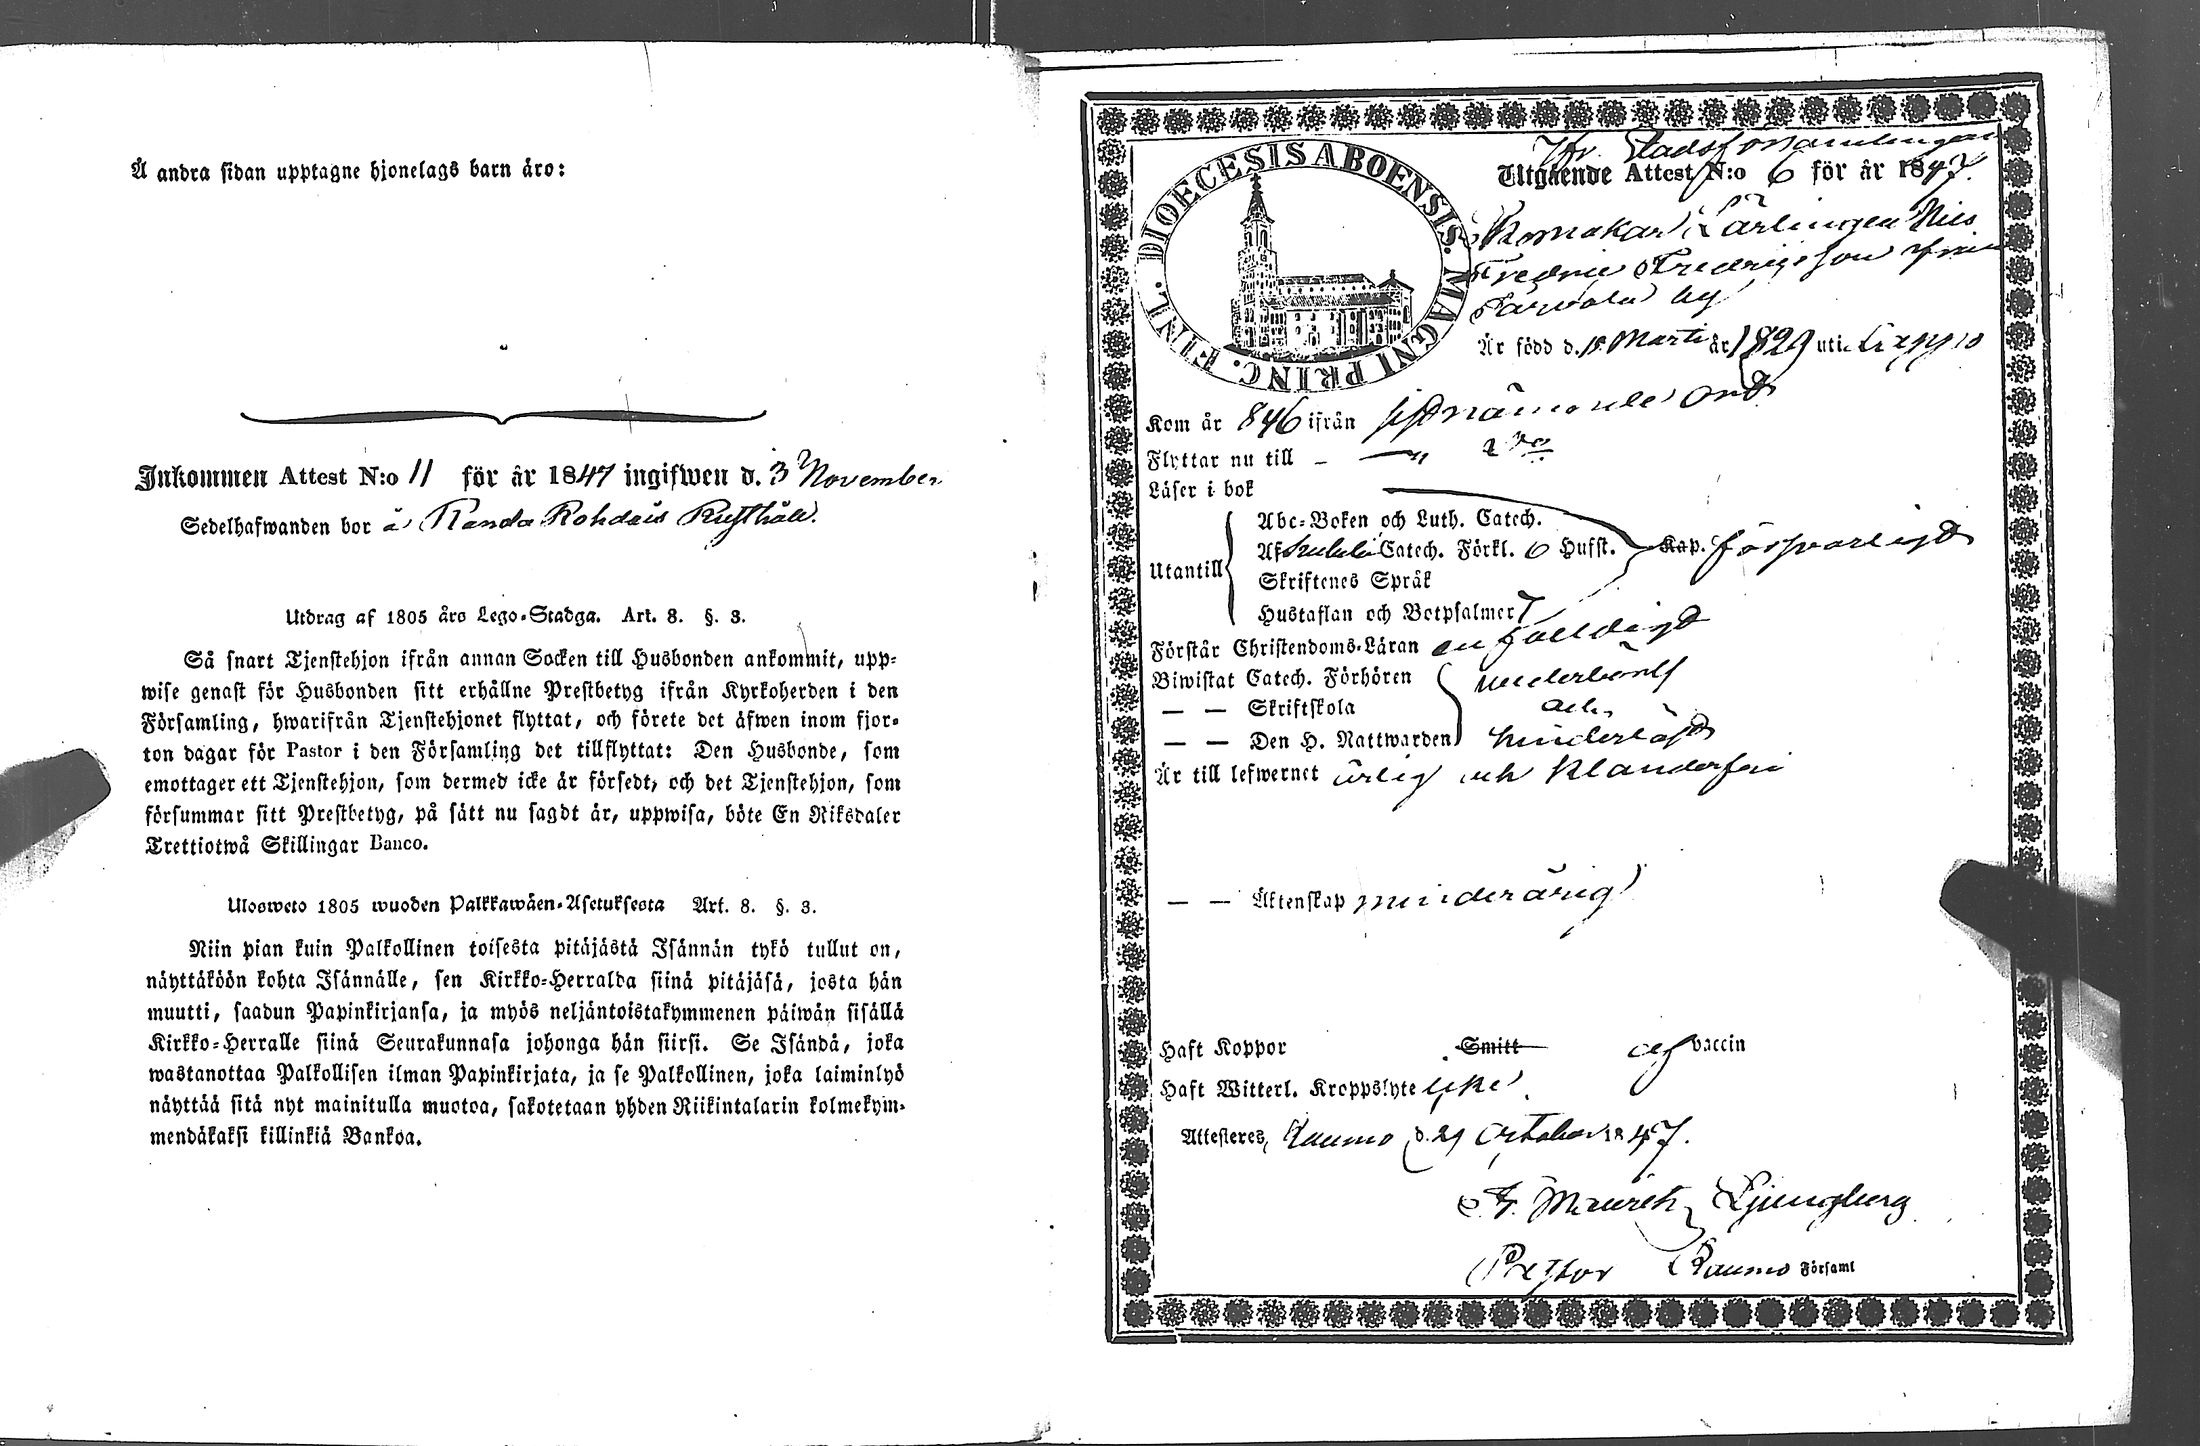 Å andra sidan upptagne hjonelags barn äro:
Inkommen Attest N:o 11 för år 1847 ingifwen d. 3 November
Sedelhafwanden bor å Randa Rohdais Rusthåll.
Utdrag af 1805 års Lego-Stadga. Art. 8. §. 3.
Så snart Tjenstehjon ifrån annan Socken till Husbonden ankommit, upp-
wise genast för Husbonden sitt erhållne Prestbetyg ifrån Kyrkoherden i den
Församling, hwarifrån Tjenstehjonet flyttat, och förete det äfwen inom fjor-
ton dagar för Pastor i den Församling det tillflyttat: Den Husbonde, som
emottager ett Tjenstehjon, som dermed icke är försedt, och det Tjenstehjon, som
försummar sitt Prestbetyg, på sätt nu sagdt är, uppwisa, böte En Riksdaler
Trettiotwå Skillingar Banco.
Ulosweto 1805 wuoden Palkkawäen-Asetuksesta Art. 8. §. 3.
Niin pian kuin Palkollinen toisesta pitäjästä Isännän tykö tullut on,
näyttäköön kohta Isännälle, sen Kirkko-Herralda siinä pitäjäsä, josta hän
muutti, saadun Papinkirjansa, ja myös neljäntoistakymmenen päiwän sisällä
Kirkko-Herralle siinä Seurakunnasa johonga hän siirsi. Se Isändä, joka
wastanottaa Palkollisen ilman Papinkirjata, ja se Palkollinen, joka laiminlyö
näyttää sitä nyt mainitulla muotoa, sakotetaan yhden Riikintalarin kolmekym-
mendäkaksi killinkiä Bankoa.
DIOECESIS ABOENSIS. MAGNI PRINC. FINL.
Ifr. Stadsförsamlingen
Utgående Attest N:o 6 för år 1847.
Skomakar Lärlingen Nils
Fredric Fredricsson ifrån
by
Är född d. 18 Marti år 1829 uti Lappo
Kom år 846 ifrån sistnämnde ort
Flyttar nu till
Läser i bok
Abc-Boken och Luth. Catech.
Af Catech. Förkl. 6 Hufst. Kap. försvarligt
Utantill Skriftenes Språk
Hustaflan och Botpsalmer 7
Förstår Christendoms-Läran enfaldigt
Biwistat Catech. Förhören vederbörl
— — Skriftskola och
— — Den H. Nattwarden hinderlöst
Är till lefwernet ärlig och klanderfri
— — Äktenskap minderårig
Haft Koppor Smitt af vaccin
Haft Witterl. Kroppslyte icke
Attesteres, Raumo d. 29 October 1847.
F. Mauritz Ljungberg
Pastor Raumo Församl